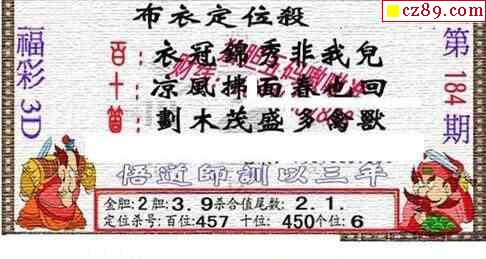 cz89.com
布衣定位殺
福彩3D
百:衣冠錦秀非我兒
十:凉風拂面春也回
個:劃木茂盛多禽獸
第184期
悟道師訓以三年
金胆:2胆:3.9杀合值尾数:2.1.
定位杀号:百位:457 十位:450个位:6